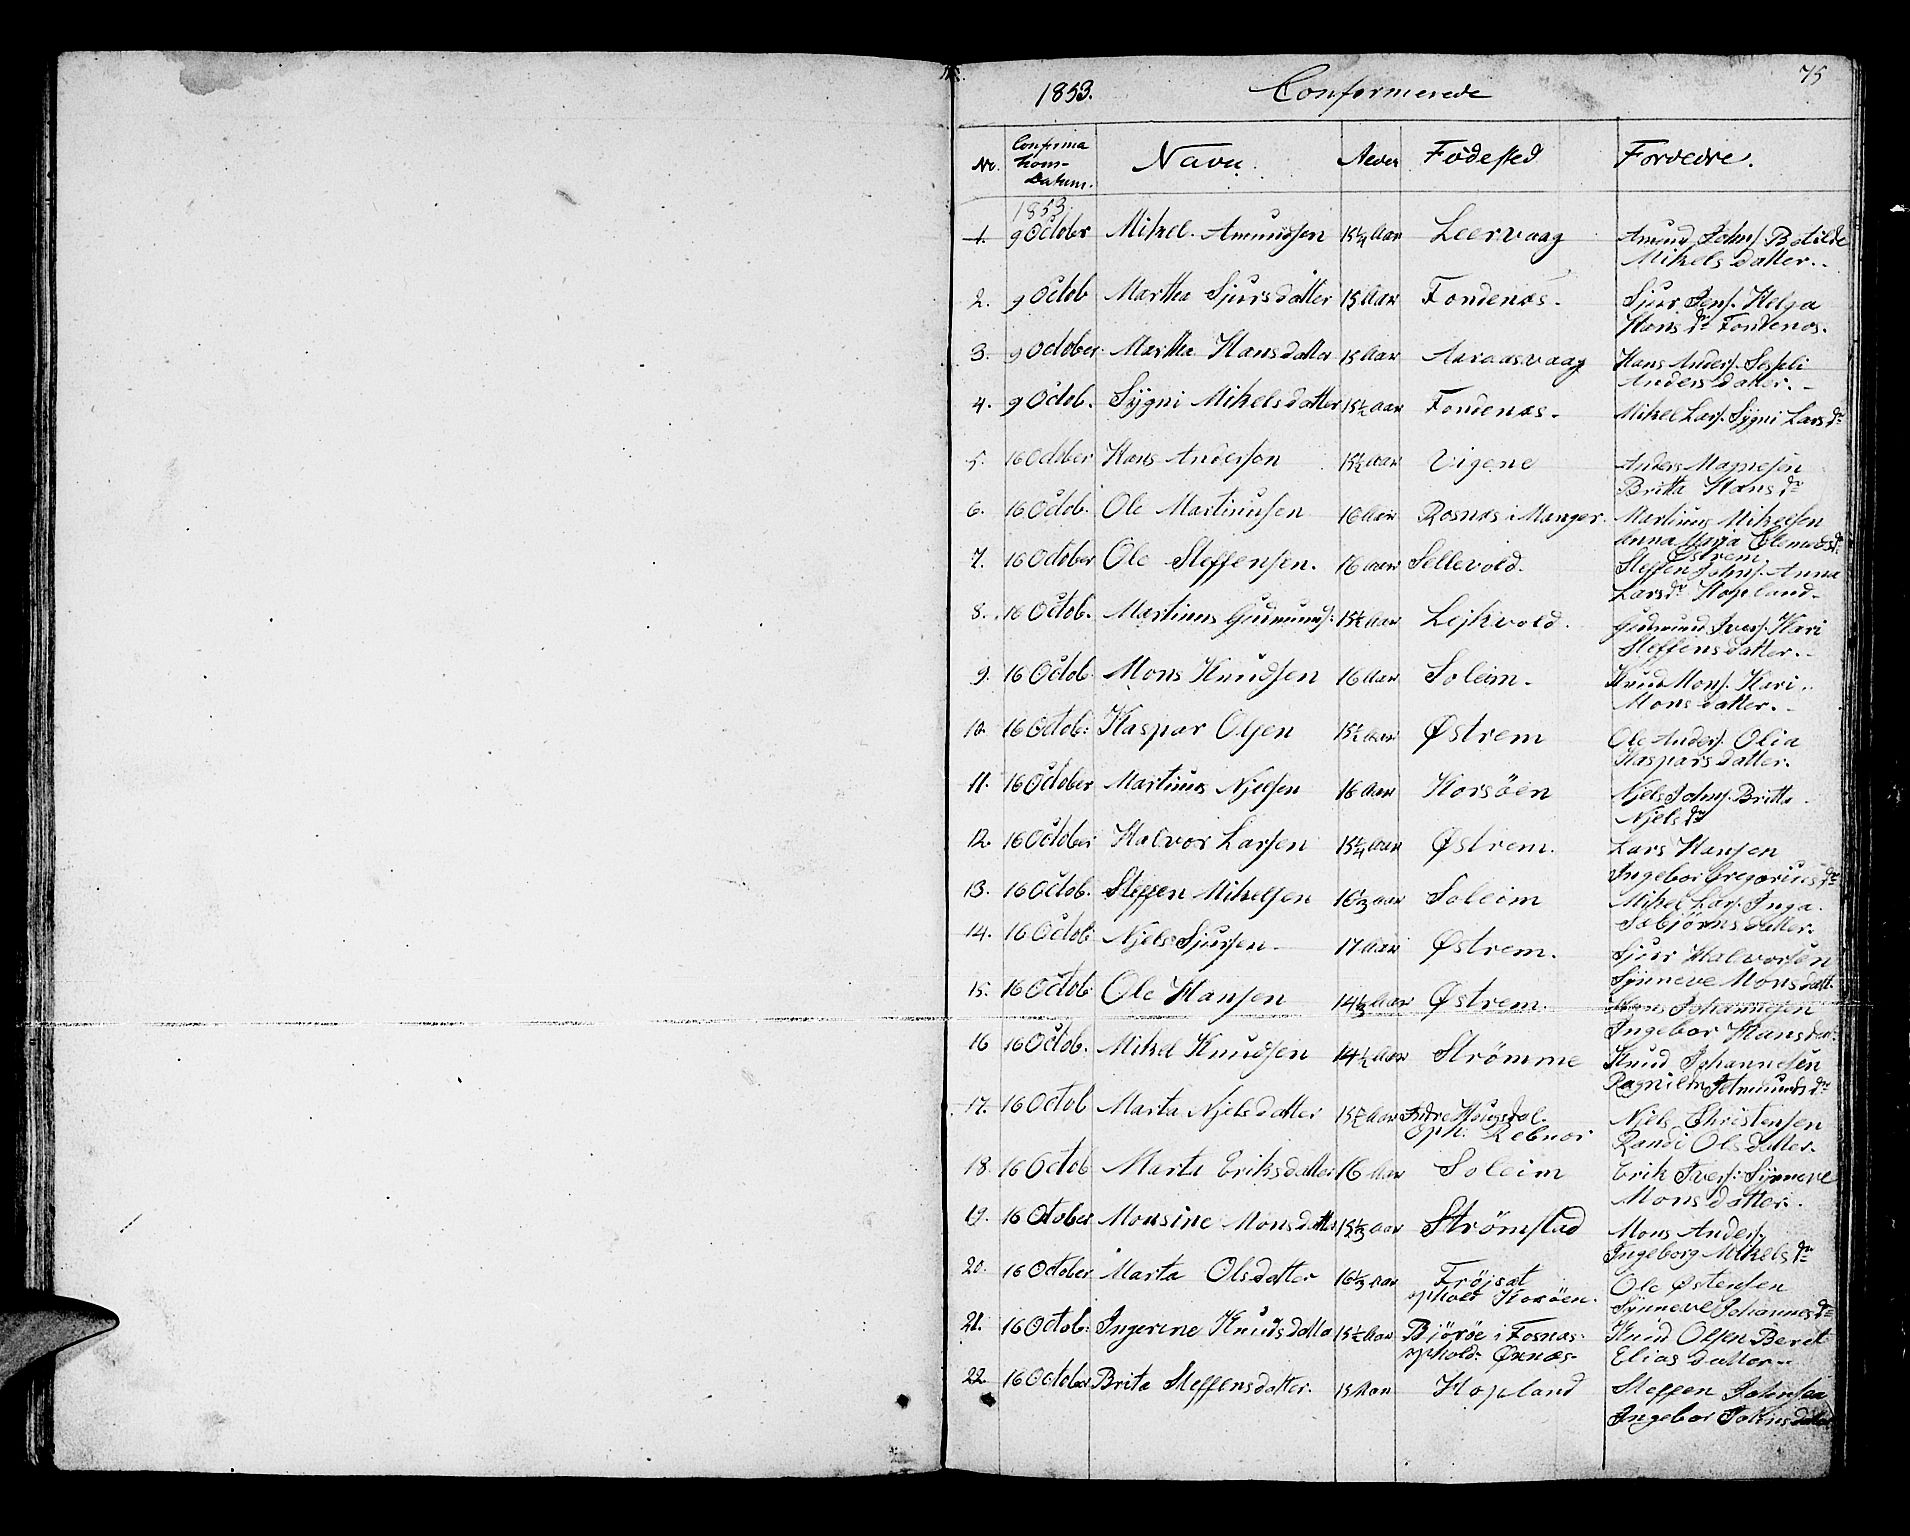 75
1853. Conformerede
No. Confirmations-Datum. Navn. Alder Födested Forældre.
1853.
1. 9 October Mikel. Amundsen 15¼ Aar Leervaag Amund Johns. Botilde
Mikelsdatter.
2. 9 Octob Martha Sjursdatter 15 Aar Fondenæs. Sjur Jens. Helga
Hans dr Fondenæs.
3. 9 October. Martha Hansdatter 15 Aar Aaraasvaag Hans Anders. Seseli
Andersdatter.
4. 9 Octob. Sygni Mikelsdatter 15½ Aar Fondenæs. Mikel Lars. Sygni Lars dr
5. 16 October Hans Andersen 15½ Aar Vigene Anders Magnesen
Britta Hans dr
6. 16 Octob. Ole Martinusen 16 Aar Rosnæs i Manger. Martinus Mikelsen
Anna Maria Clemets dr
Østrem
7. 16 October Ole Steffensen. 16 Aar Sellevold. Steffen Johns. Anna
Lars dr Hopland.
8. 16 Octob. Martinus Gudmunds. 15½ Aar Lejkvold. Gudmund Ivers. Kari
Steffensdatter.
9. 16 Octob. Mons Knudsen 16 Aar Soleim. Knud Mons. Kari
Monsdatter.
10. 16 Octob: Kaspar Olsen 15½ Aar Østrem Ole Anders. Olia
Kaspars datter.
11. 16 October Martinus Njelsen 16 Aar Korsöen Njels Johns. Britta
Njels dr
12. 16 October Halvor Larsen 15¼ Aar Østrem. Lars Hansen
Ingebor Gregorius dr
13. 16 Octob. Steffen Mikelsen 16⅓ Aar Soleim Mikel Lars. Inga
Sebjörnsdatter.
14. 16 Octob. Njels Sjursen. 17 Aar Østrem. Sjur Halvorsen
Synneve Monsdatt.
15. 16 Octob. Ole Hansen 14⅓ Aar Østrem. Hans Johannesen
Ingebor Hansdatt.
16 16 Octob. Mikel Knudsen 14½ Aar Strømme Knud Johannesen
Ragnilda Amunds dr
17. 16 Octob Marta Njelsdatter 15½ Aar Indre Hougsdal. Njels Christensen
Oph: Rebnor Randi Olsdatter.
18. 16 Octob Marta Eriksdatter 16 Aar Soleim Erik Ivers. Synneve
Monsdatter.
19. 16 October Monsine Monsdatter 15⅓ Aar Strömstad Mons Anders.
Ingeborg Mikels dr
20. 16 October Marta Olsdatter 16⅓ Aar Fröjsat Ole Østensen
ophold Korsöen. Synneve Johannes dr
21. 16 Octob: Ingerine Knudsdatter 15½ Aar Björöe i Fosnæs. Knud Olsen Beret
ophold: Øxnæs. Elias datter
22. 16 October Brita Steffensdatter. 15 Aar Hopland Steffen Johnsen
Ingebor Johnsdatter